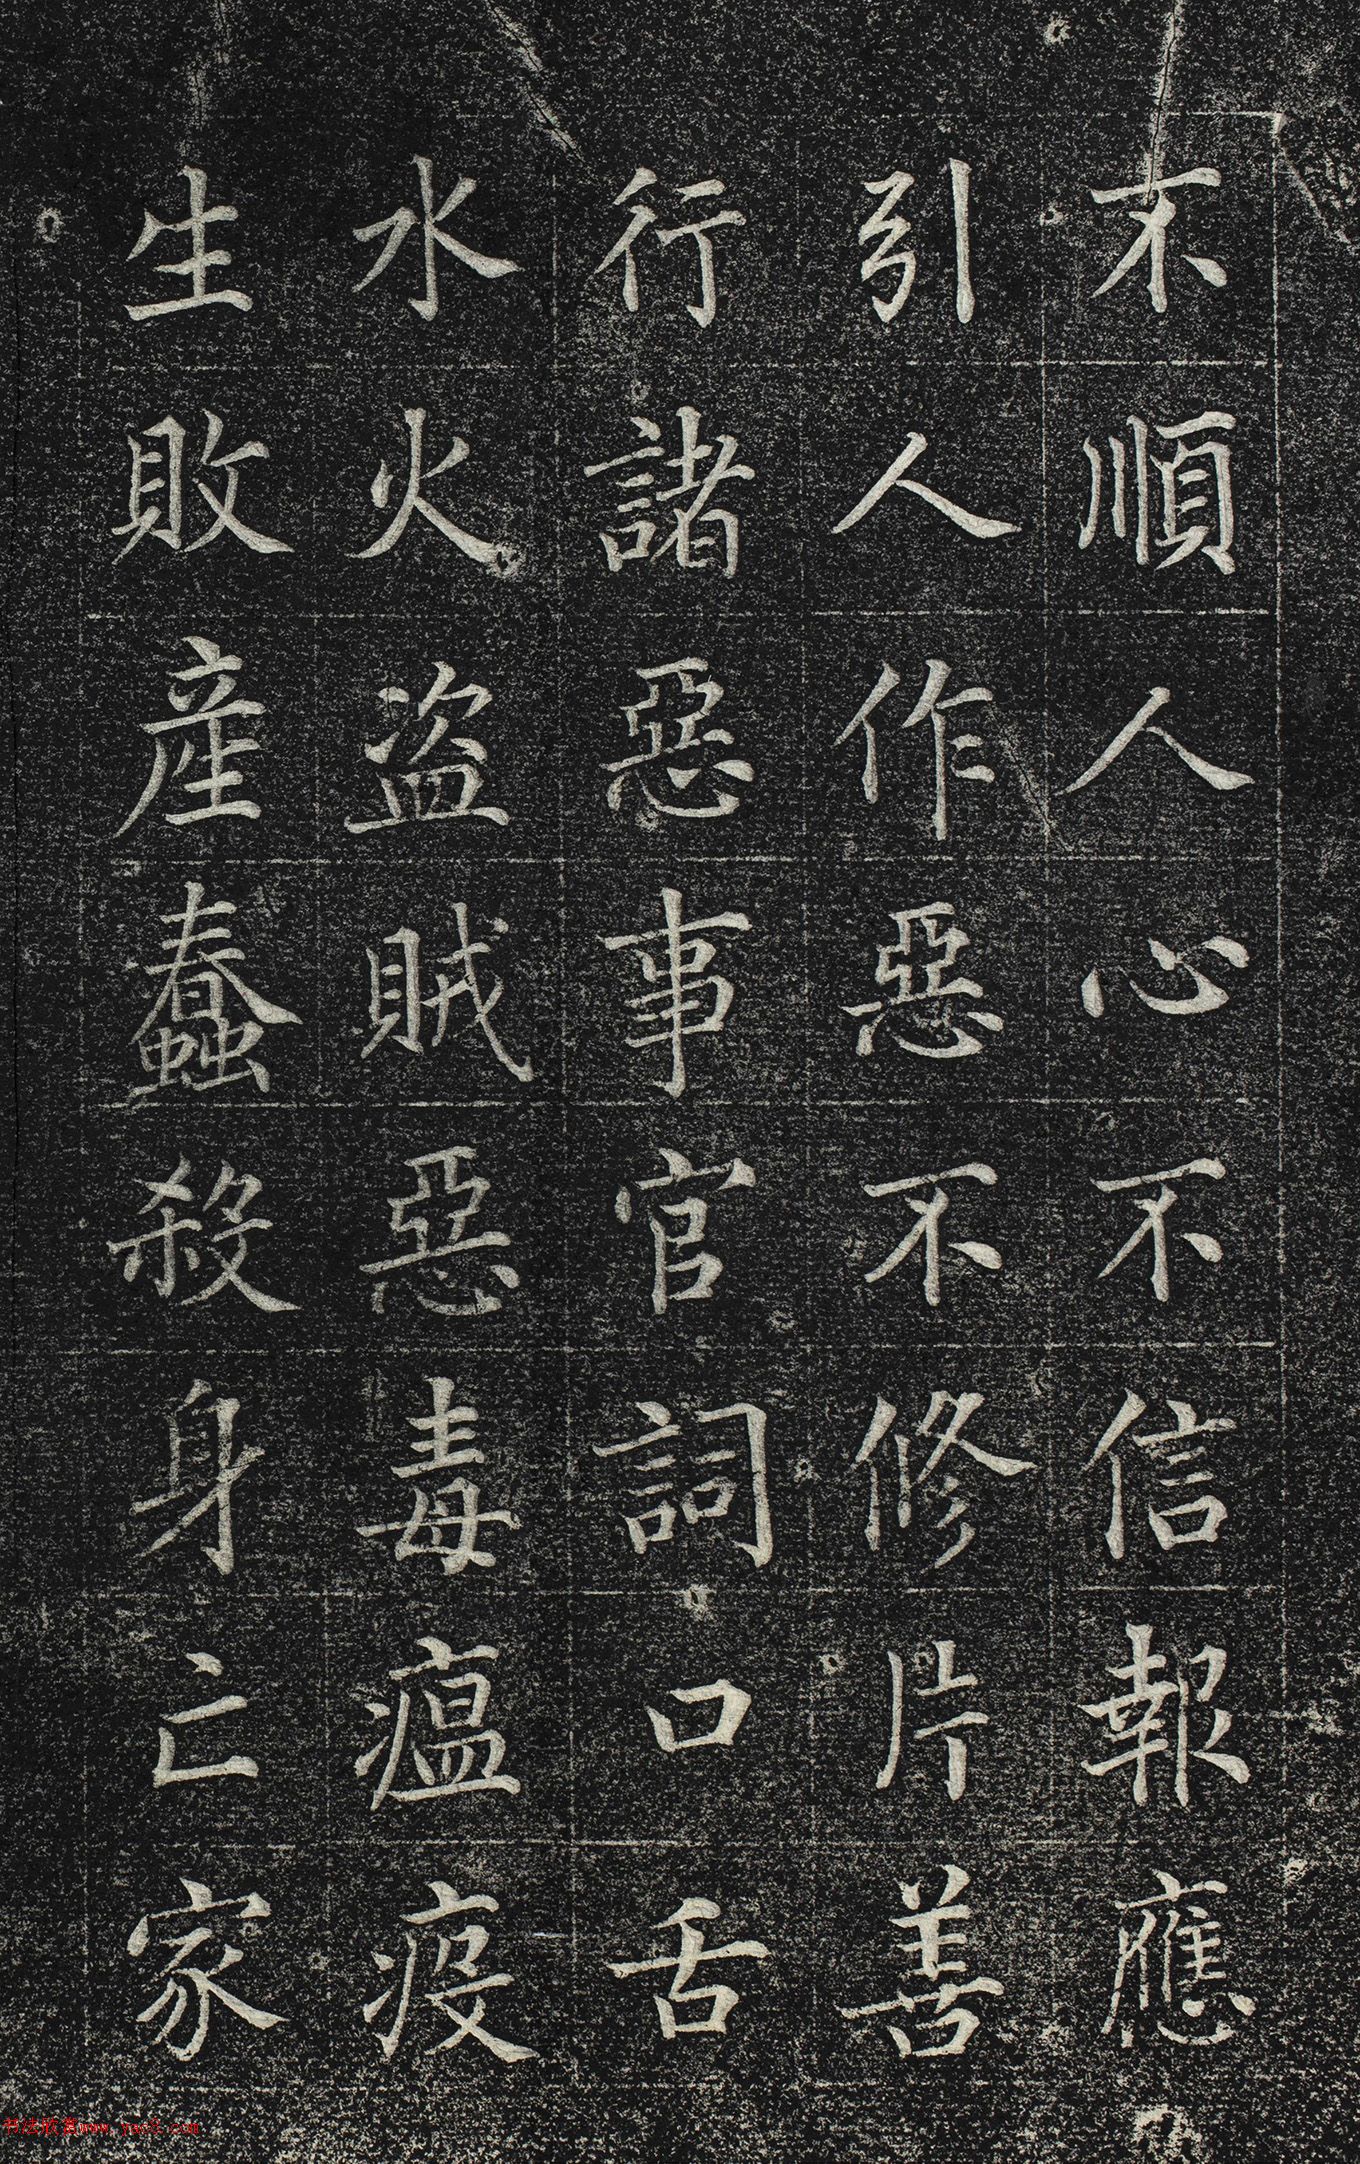 不順人心不信報應
引人作惡不修片善
行諸惡事官詞口舌
水火盗賊惡毒瘟疫
生敗產蠢殺身亡家
书法欣赏www.yac8.com